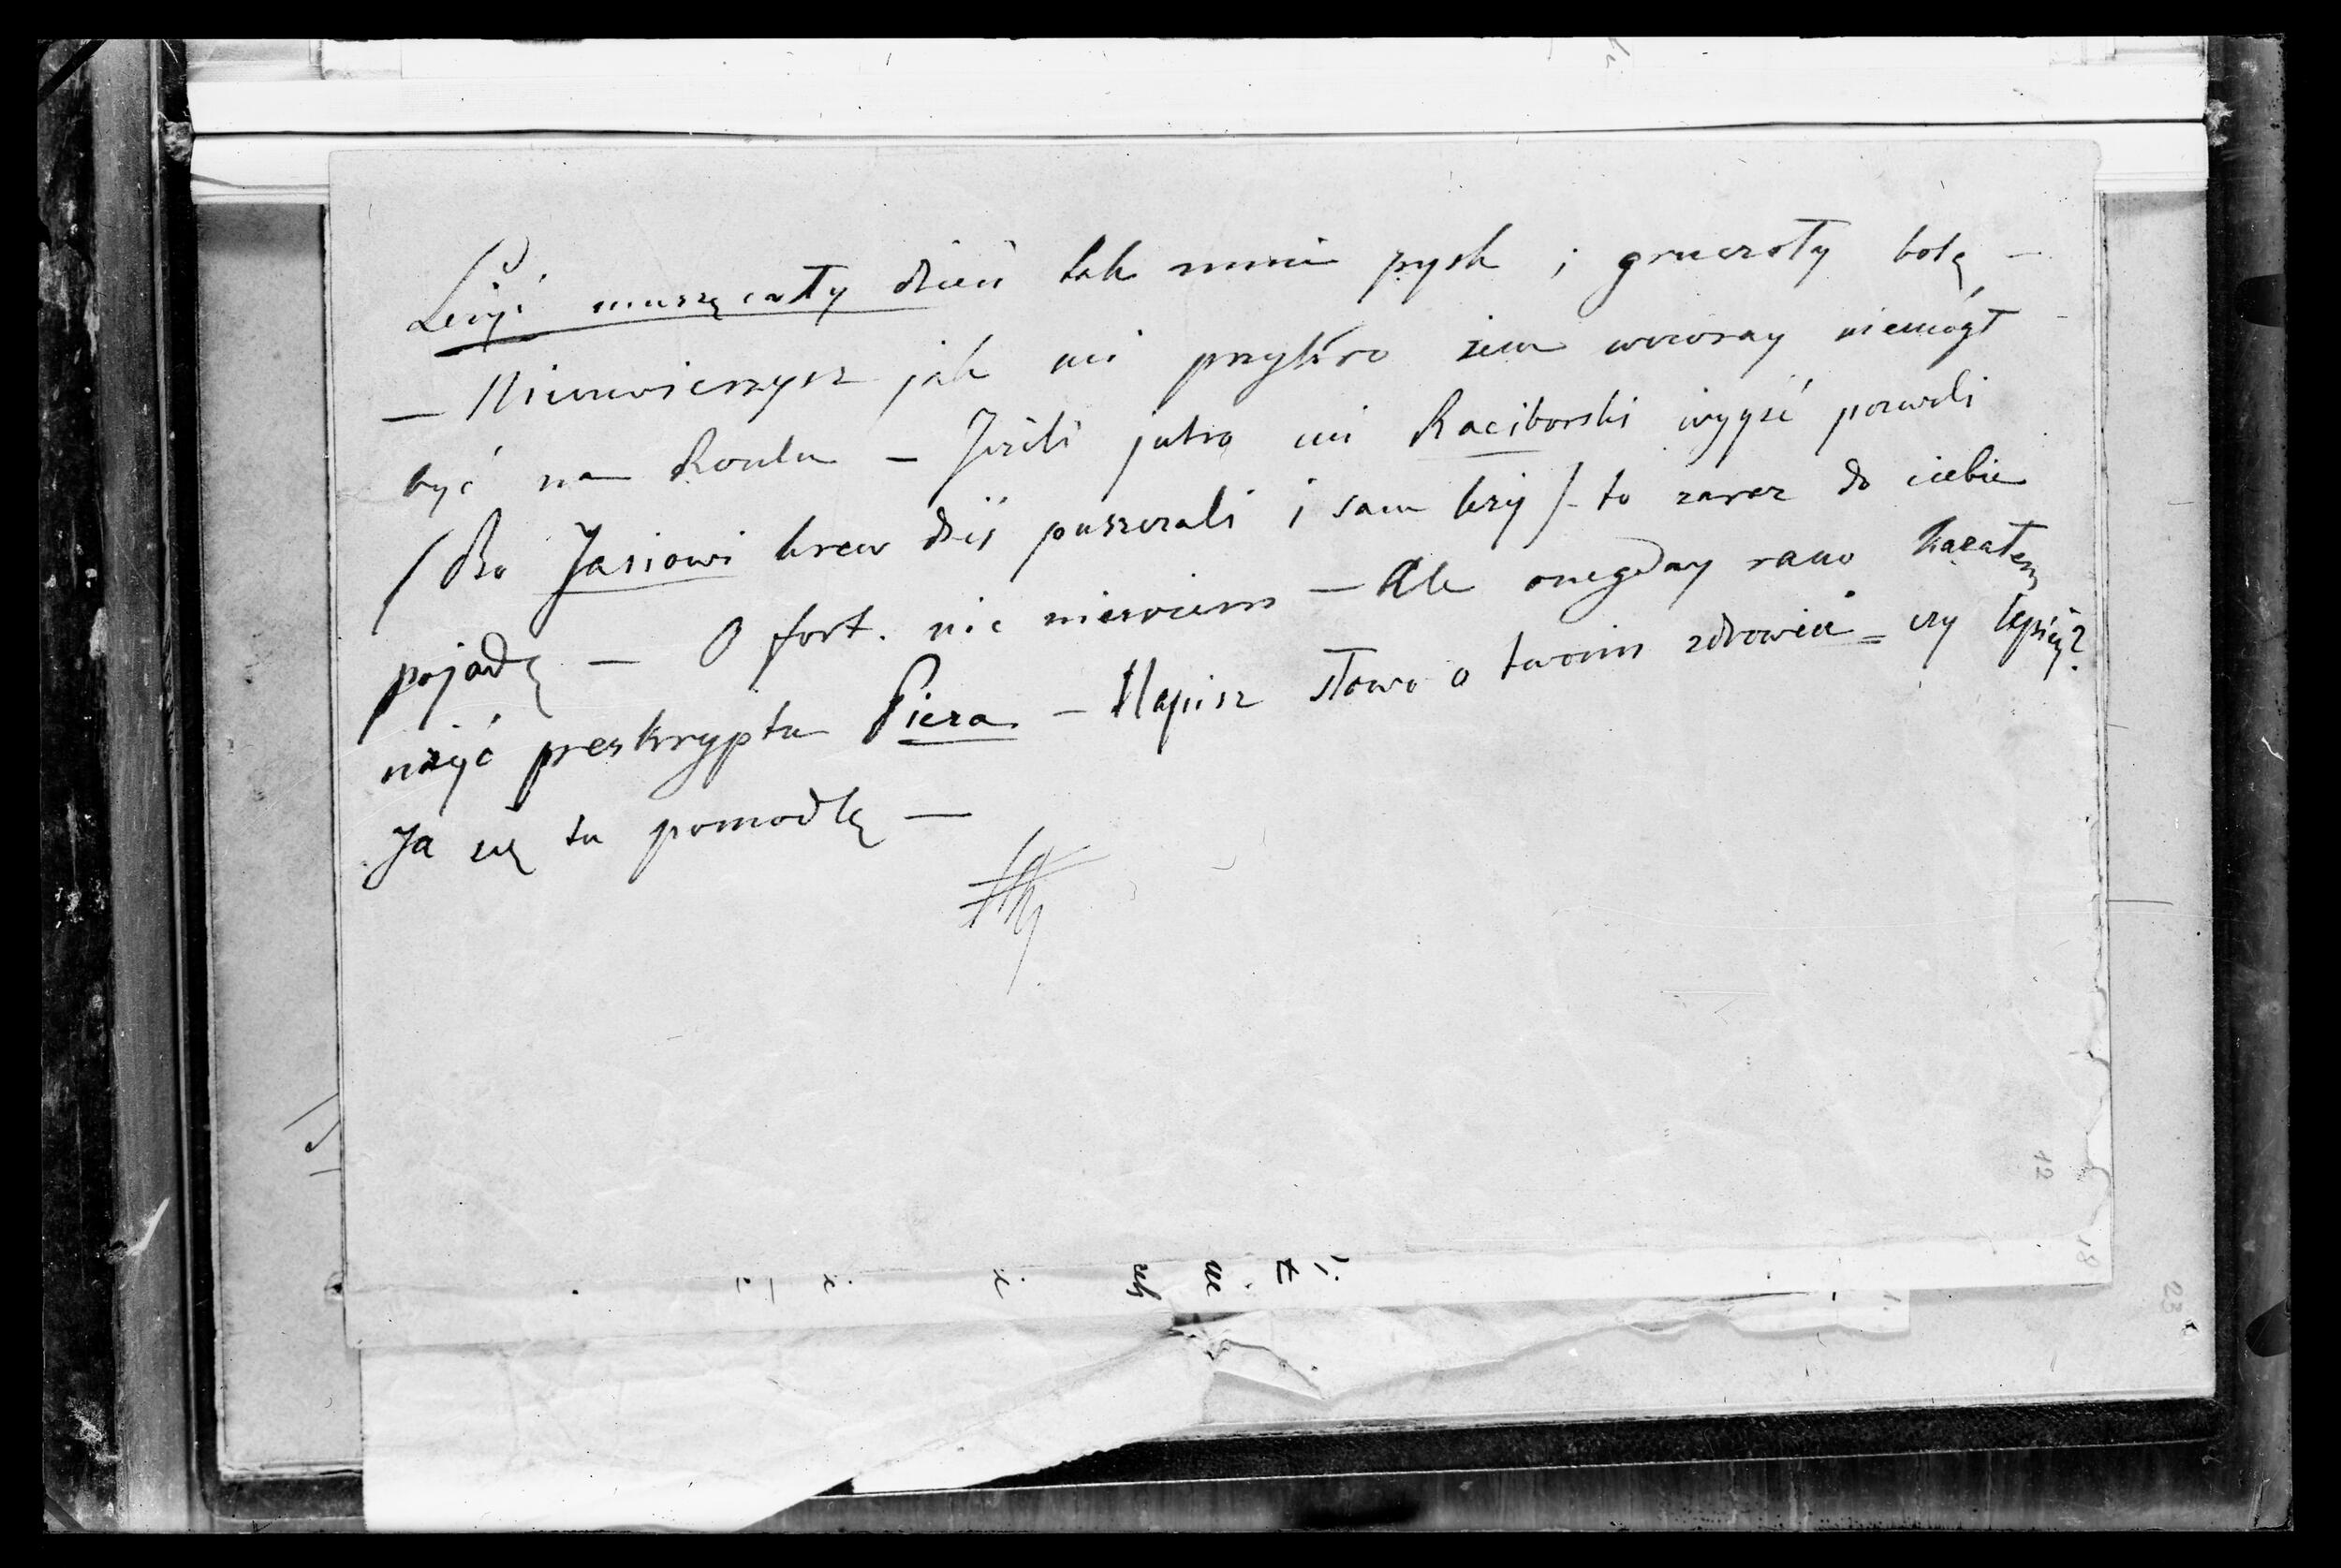 Leżyć muszę cały dzień tak mnie pysk i gruczoły bolą —
— Niewuwierzysz jak mi przykro żem wczoray niemógł
być na Roulu — Jeżeli jutro mi Raciborski wyyść pozwoli
/Bo Jasiowi krew dziś puszczali i sam leży/ — to zaraz do ciebie
pojadę — O fort. nic niewiem — Ale onegday rano kazałem
użyć preskryptu Piera — Napisz słowo o twoim zdrowiu = czy lepiéy?
Ja się tu pomodlę —
12
18
23